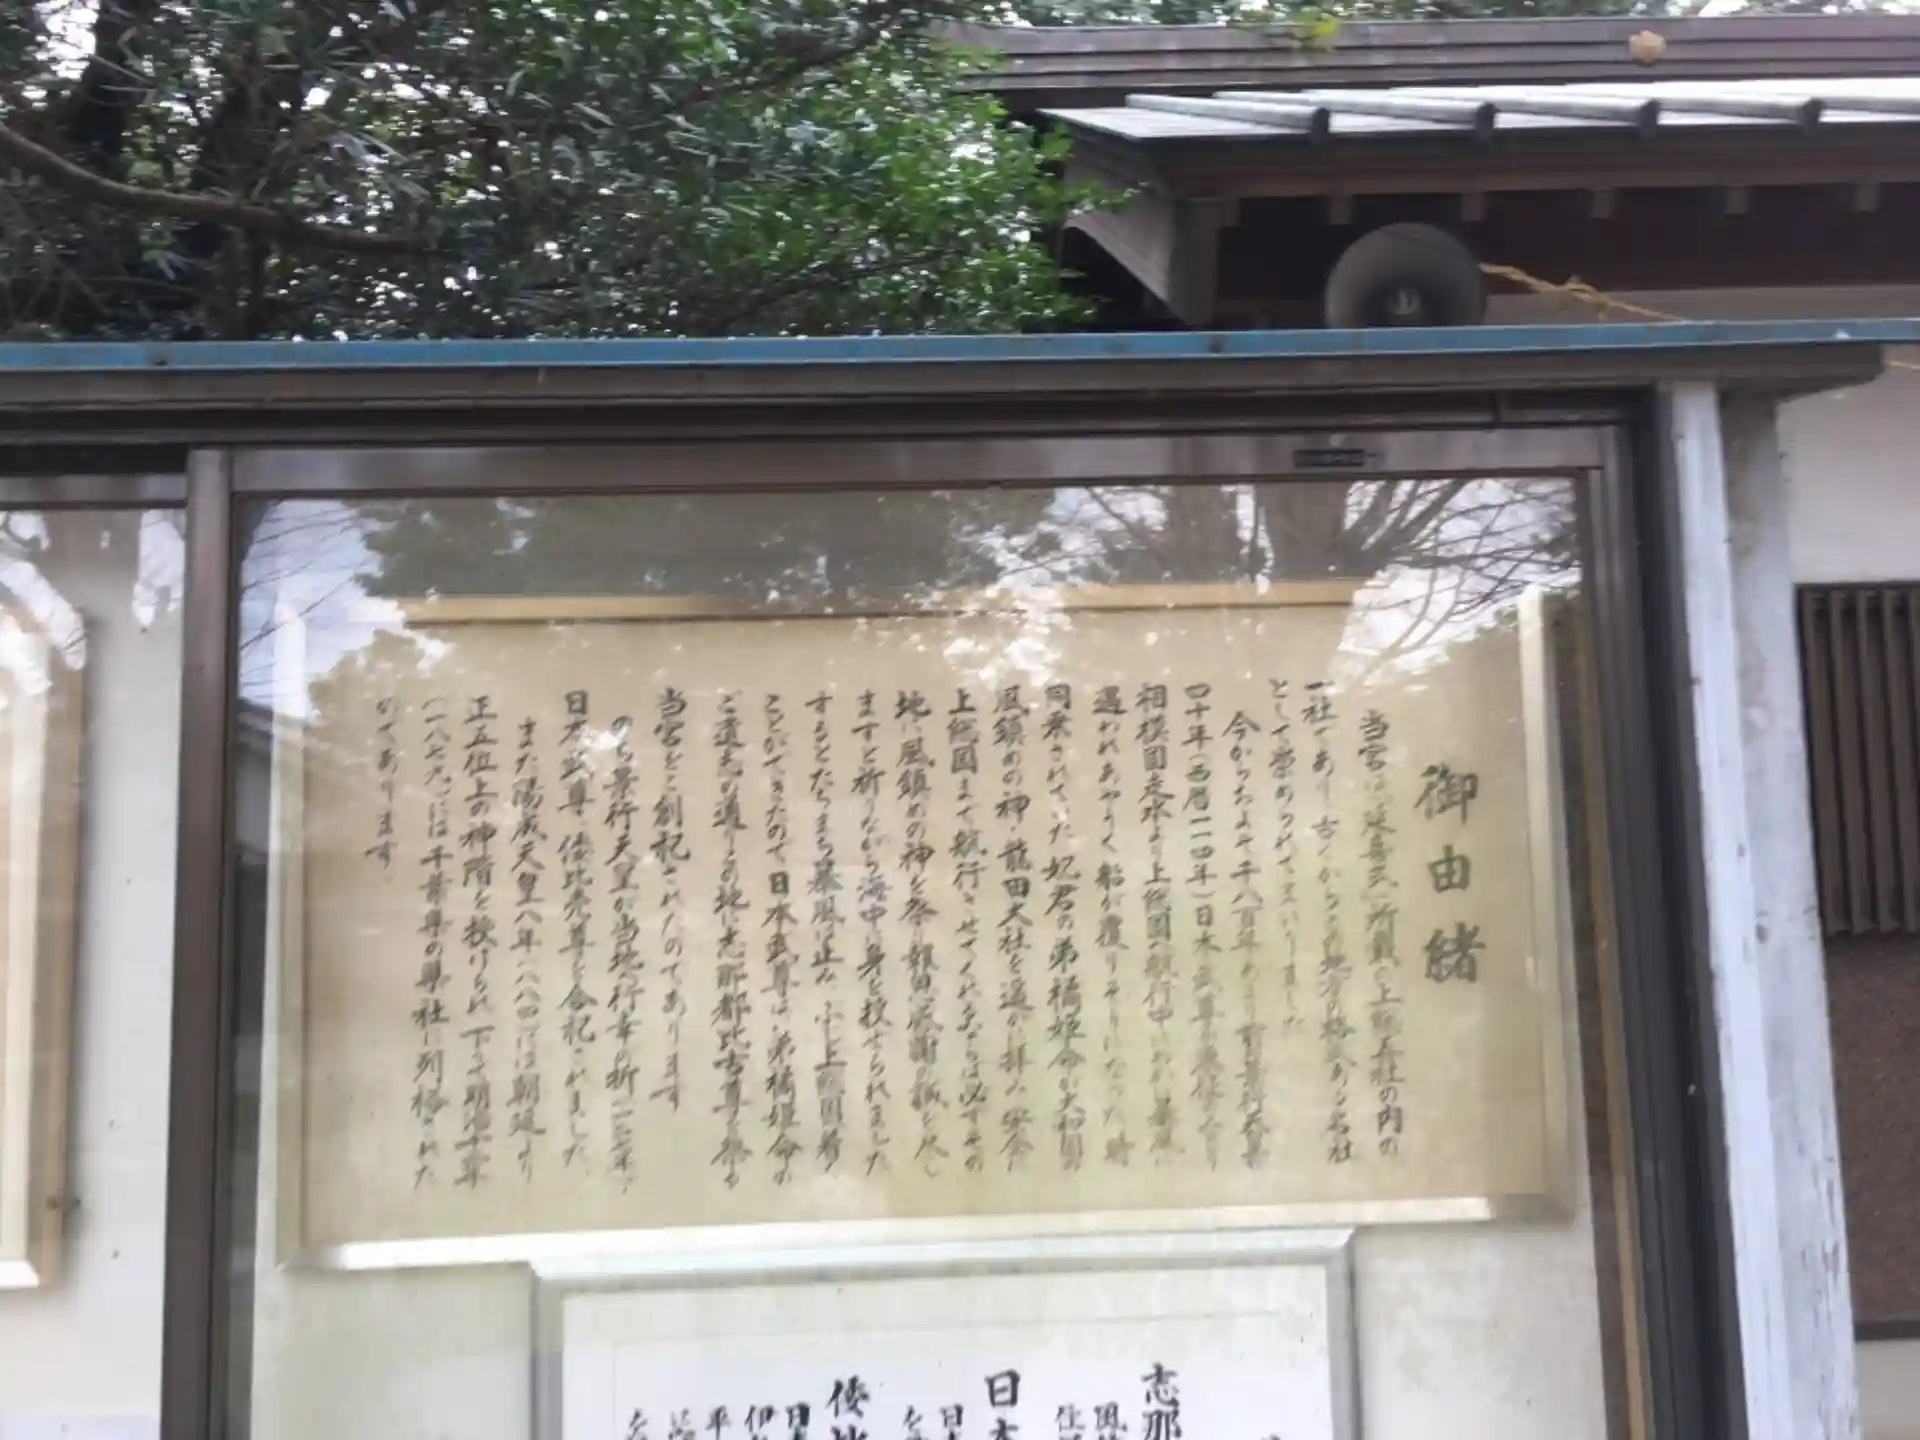 御由緒
当宮は「延喜式」所載の上総五社の内の
一社であり古くからこの地方の格式ある名社
として崇められてまいりました
今からおよそ千八百年あまり前景行天皇
四十年(西暦一一四年)日本武尊
相模国走水より上総国へ航行中にわかに暴風に
遇われあやうく船が覆りそうになった時
同乗されていた妃君の弟橘姫命が大和国の
風鎮めの神・龍田大社を遥かに拝み安全に
上総国まで航行させてくれるならば必ずその
地に風鎮めの神を祭り報恩感謝の誠を尽し
ますと祈りながら海中に身を投ぜられました
するとたちまち暴風は止み ぶじ上総国に着く
ことができたので日本武尊は、弟橘姫命の
ご遺志の通りこの地に志那都比古尊を祭る
当宮をご創祀されたのであります
のち景行天皇が当地へ行幸の折
日本武尊・倭比売尊を合祀されました。
また陽成天皇八年(八八四)には朝廷より
正五位上の神階を授けられ 下って明治十二年
(一八七九)には千葉県の県社に列格された
のであります
志那
日本
倭比